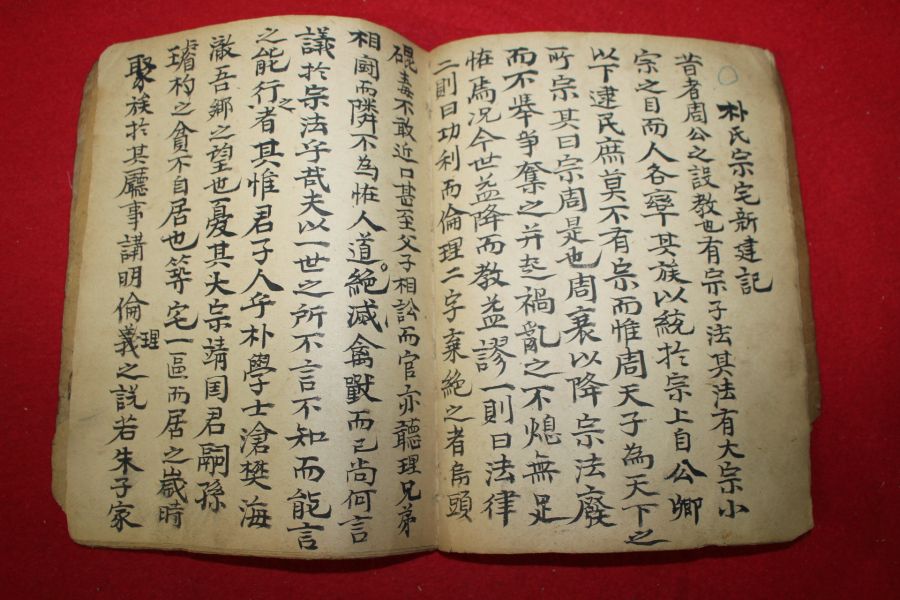 朴氏宗宅新建記
昔者周公之設教也有宗子法其法有大宗小
宗之目而人各率其族以統於宗上自公卿
以下逮民庶莫不有宗而惟周天子為天下之
所宗其曰宗周是也周衰以降宗法廢
而不舉爭奪之幷起禍亂之不熄無足
怪焉况今世益降而教益謬一則曰法律
二則曰功利而倫理二字棄絶之者烏頭
砒毒不敢近口甚至父子相訟而官亦聽理兄弟
相鬪而隣不為怪人道絶滅禽獸而已尚何言
議於宗法乎哉夫以一世之所不言不知而能言
之能行之者其惟君子人乎朴學士滄樊海
澈吾鄉之望也憂其大宗靖国君嗣孫
璿杓之貧不自居也築宅一區而居之歲時
聚族於其廳事講明倫理義之說若朱子家